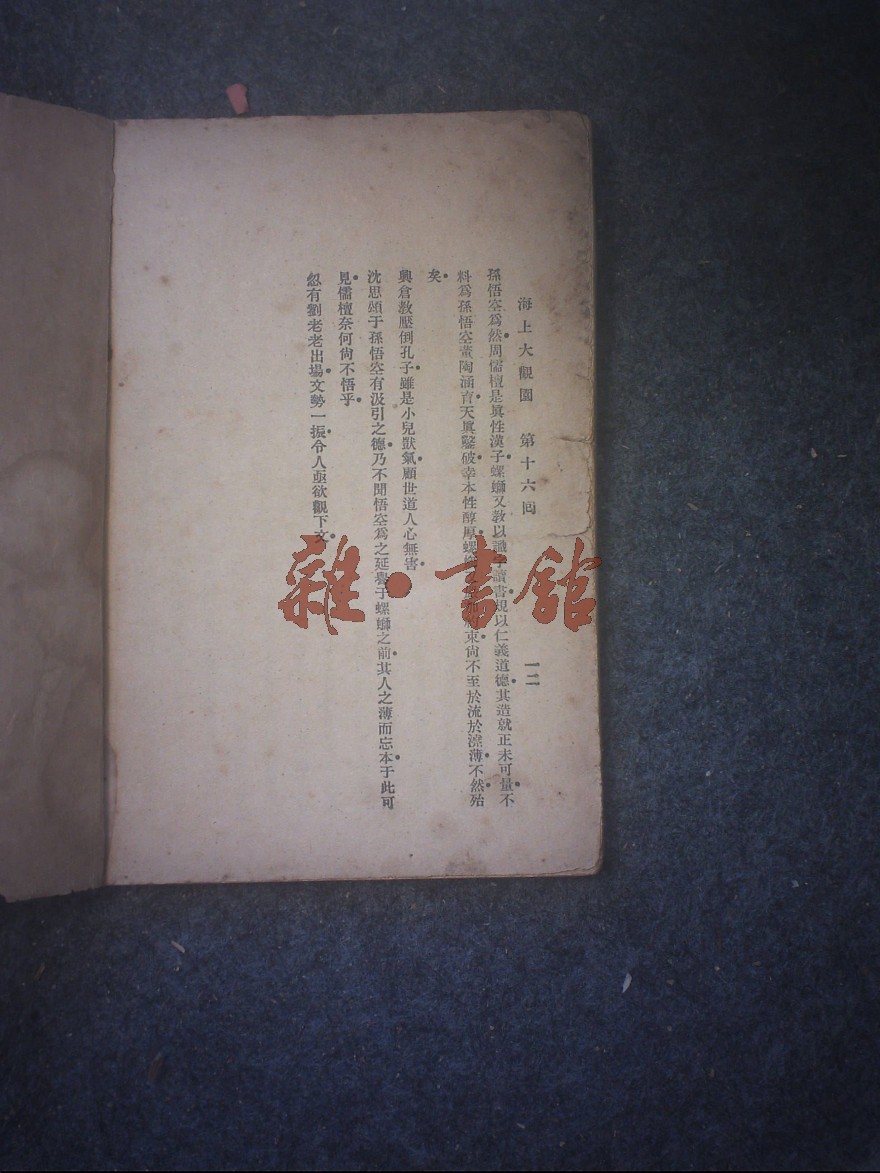 海上大觀園　第十六回　一二
孫悟空爲然周儒檀是眞性漢子螺螄又敎以識字讀書規以仁義道德其造就正未可量不
料爲孫悟空薰陶涵育天眞鑿破幸本性醇厚螺束尙不至於流於澆薄不然殆
矣
興倉敎壓倒孔子雖是小兒獃氣顧世道人心無害
沈思頲于孫悟空有汲引之德乃不聞悟空爲之延譽于螺螄之前其人之薄而忘本于此可
見儒檀奈何尙不悟乎
忽有劉老老出場文勢一振令人亟欲觀下文
雜·書館